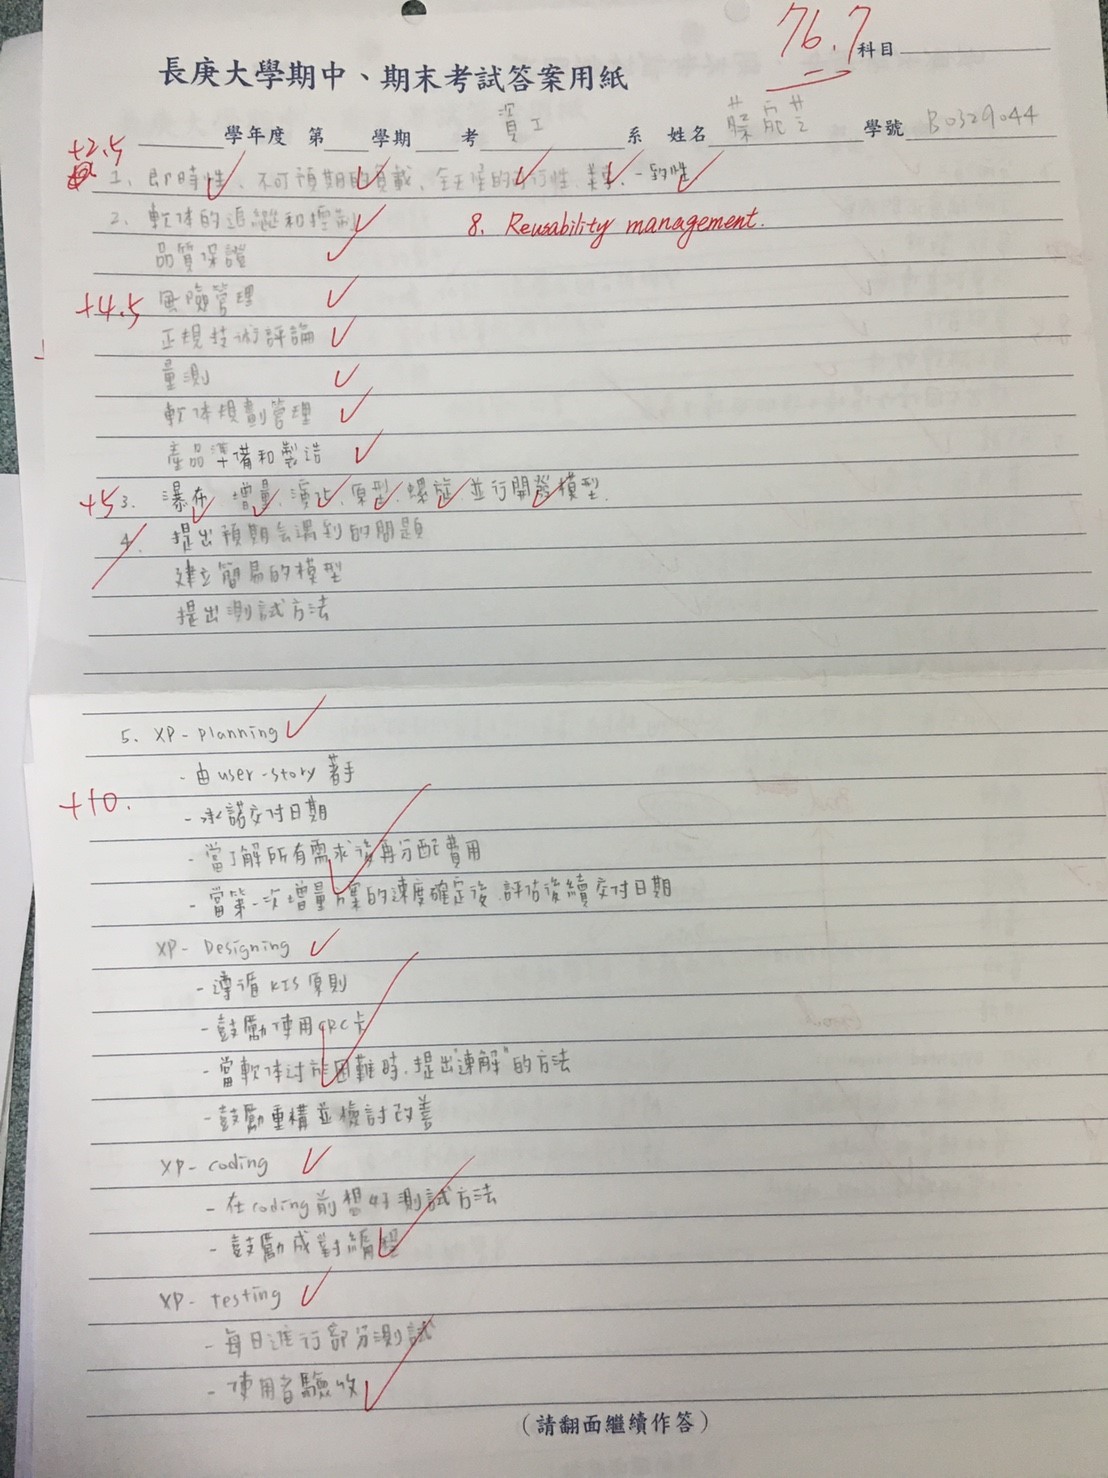 76.7
科目
長庚大學期中、期末考試答案用紙
學年度 第 學期 考 資工 系 姓名 學號 B0329044
+2.5
1、即時性、不可預期的負載、全天候的可行性、 、一致性
2、軟体的追蹤和控制
8. Reusability management.
品質保證
+4.5 風險管理
正規技術評論
量測
軟体規劃管理
產品準備和製造
+5 3. 瀑布、增量、演化、原型、螺旋、並行開發模型.
4. 提出預期會遇到的問題
建立簡易的模型
提出測試方法
5. XP- planning
- 由user-story 著手
+10.
- 承諾交付日期
- 當了解所有需求後再分配費用
- 當第一次增量方案的速度確定後,評估後續交付日期
XP- Designing
- 遵循KIS原則
- 鼓勵使用CRC卡
- 當軟体 困難時,提出"速解"的方法
- 鼓勵重構並檢討改善
XP- coding
- 在coding前想好測試方法
- 鼓勵成對編程
XP- testing
- 每日進行部分測試
- 使用者驗收
(請翻面繼續作答)